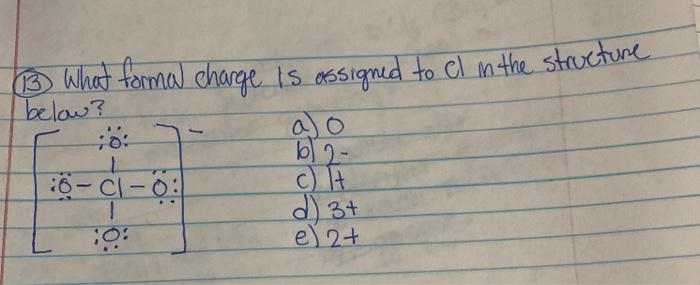 13 What formal charge is assigned to Cl in the structure
below?
[ :Ö: ]⁻
|
:Ö - Cl - Ö:
|
:O:
a) 0
b) 2-
c) 1+
d) 3+
e) 2+